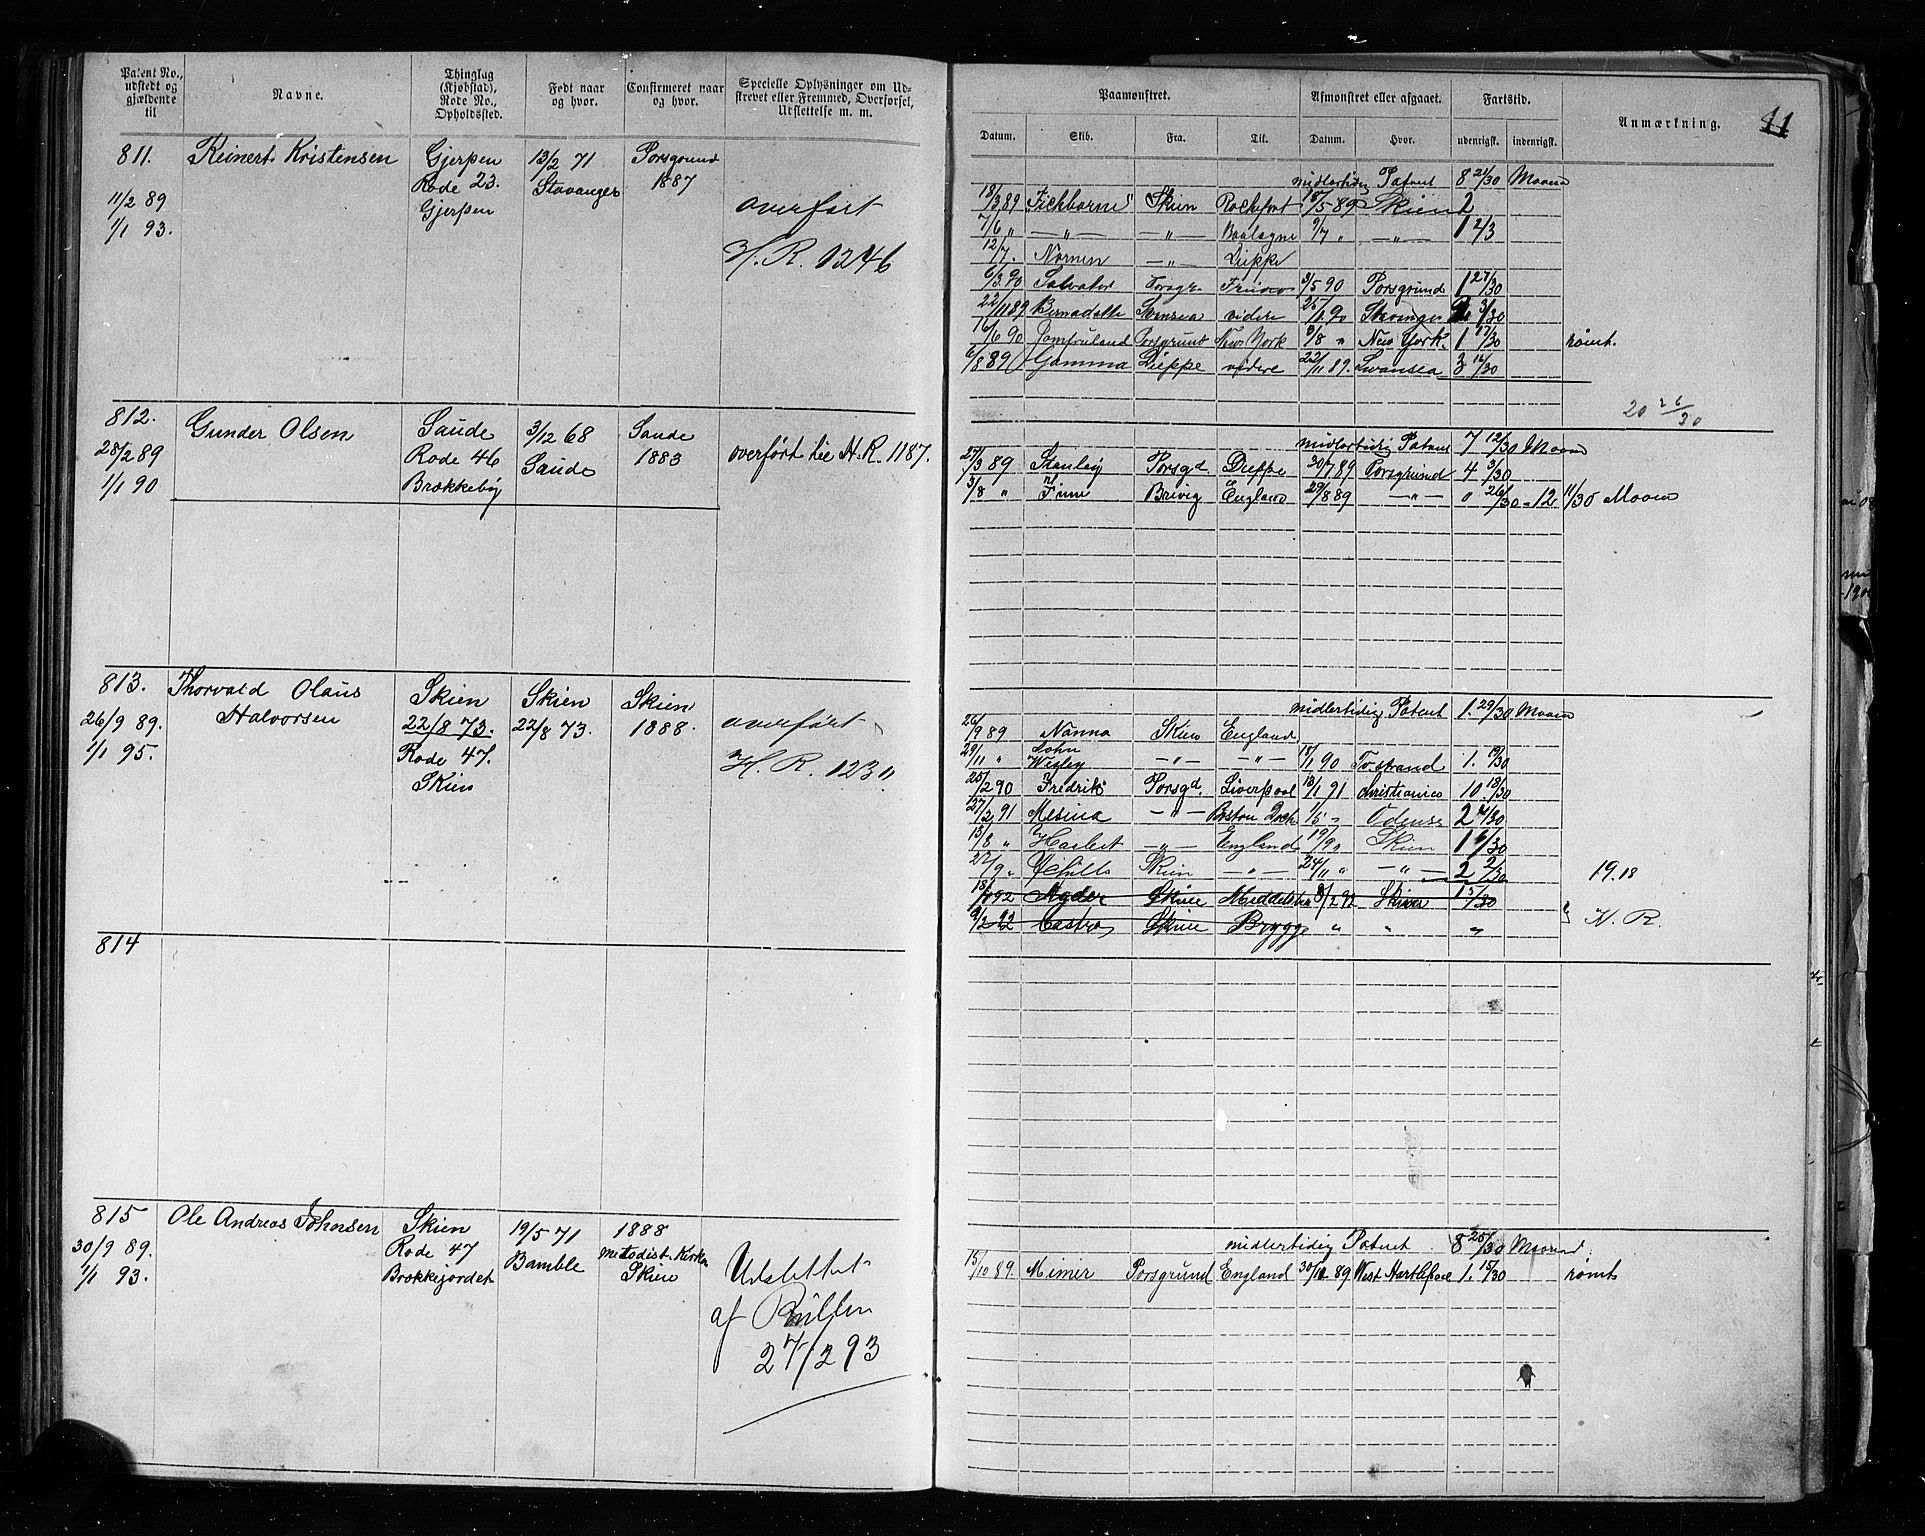 Patent No., udstedt og gjældende til
Navne.
Thinglag (Kjøbstad), Rode No., Opholdssted.
Født naar og hvor.
Confirmeret naar og hvor.
Specielle Oplysninger om Udskrevet eller Fremmed, Overførsel, Udslettelse m. m.
811.
Reinert Kristensen
Gjerpen
13/2 71
Porsgrund
Rode 23.
Stavanger
1887
11/2 89
Gjerpen
overført
1/1 93.
H. R. 1246
812.
Gunder Olsen
Saude
3/12 68
Saude
28/2 89
Rode 46
Saude
1883
overført til H. R. 1187.
1/1 90
Brækkebøy
813.
Thorvald Olaus
Skien
Skien
Skien
26/9 89.
Halvorsen
22/8 73.
22/8 73.
1888.
overført
1/1 95.
Rode 47.
H. R. 1230
Skien
814
815
Ole Andreas Johnsen
Skien
19/5 71
1888
30/9 89.
Rode 47
Bamble
Metodist. Kirken
1/1 93.
Brækkejordet
Skien
Udslettet
af Rullen
27/2 93
Paamønstret.
Afmønstret eller afgaaet.
Fartstid.
Anmærkning.
11
Datum.
Skib.
Fra.
Til.
Datum.
Hvor.
udenrigsk.
indenrigsk.
midlertidig Patent 8 21/30 Maaned
18/3 89 Skien Rochefort 18/5 89 Skien 2
7/6 " — " — — " — Boulogne 9/7 " — " — 1 2/3
12/7. Nornen — " — Dieppe
6/3 90 Salvator Porsgr. 3/5 90 Porsgrund 1 27/30
22/11 89 Bernadotte Svansea videre 25/1 90 Stavanger 3/30
16/6 90 Jomfruland Porsgrund New York 3/8 " New York. 1 17/30 rømt.
6/8 89 Gamma Dieppe videre 22/11 89. Swansea 3 16/30
20 26/30
midlertidig Patent 7 12/30 Maaned
27/3 89 Stanley Porsgd Dieppe 30/7 89 Porsgrund 4 3/30
3/8 " Finn Brevig England 29/8 89 — " — 0 26/30 = 12 11/30 Maaned
midlertidig Patent 1. 29/30 Maaned
26/9 89 Nanna Skien England
29/11 " John Wesley — " — — " — 18/1 90 Tvedestrand 1. 19/30
25/2 90 Fredrik Porsgd. Liverpool 13/1 91 Christiania 10. 18/30
27/2 91 Mesina — " — Boston Dock 1/5 " Odense 2 4/30
13/8 " — " — England 19/9 " Skien 1 6/30
22/9 " Skien — " — 24/11 " — " — 2 2/30
19.18
18/1 92 Agder Skien Middelsbro 3/2 92 Skien 15/30
9/2 92 Castro Skien Brygge " " "
H. R.
midlertidig Patent 8 25/30 Maaned
15/10 89. Mimer Porsgrund England 30/11 89 West Hartlepool 1. 15/30 rømt